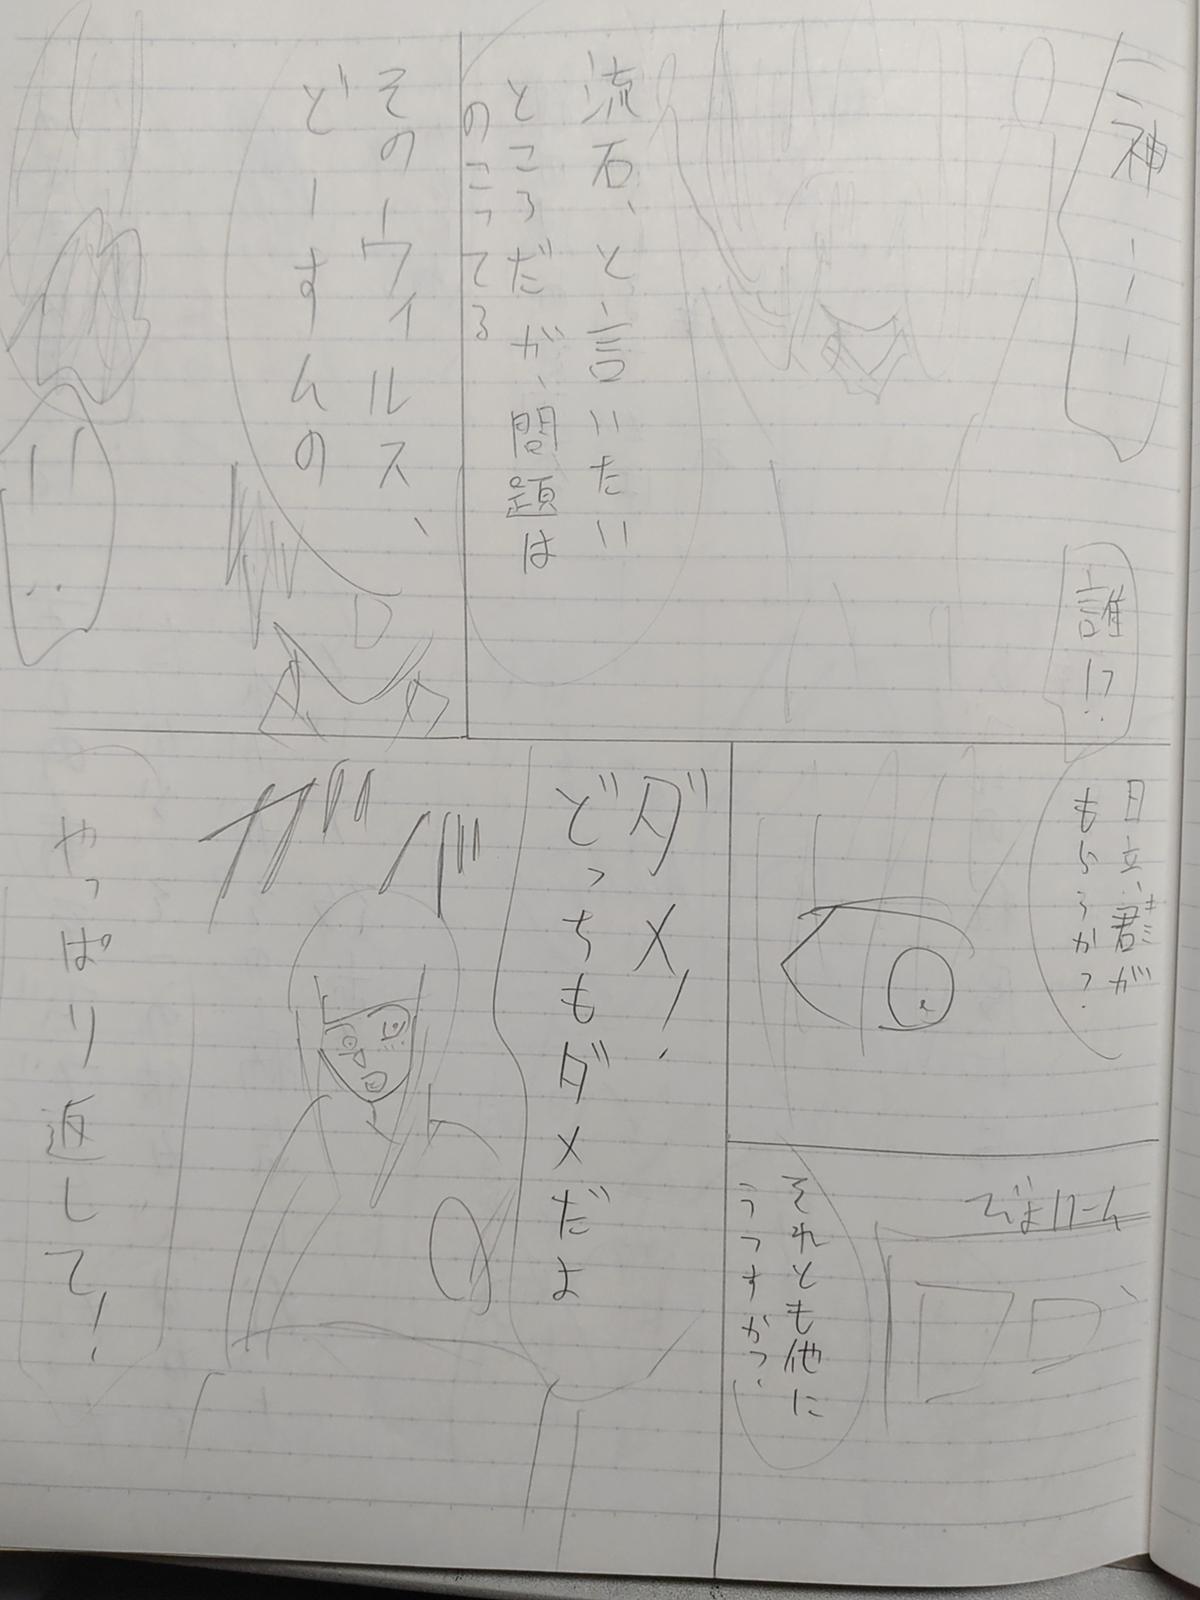 神ーーー
誰!?
流石、と言いたい
ところだが、問題は
のこってる
そのーウィルス、
どーすんの
!!
日立、君が
キミ
もらうか?
それとも他に
うつすか?
ダメ!
どっちもダメだよ
ガバ
やっぱり返して!